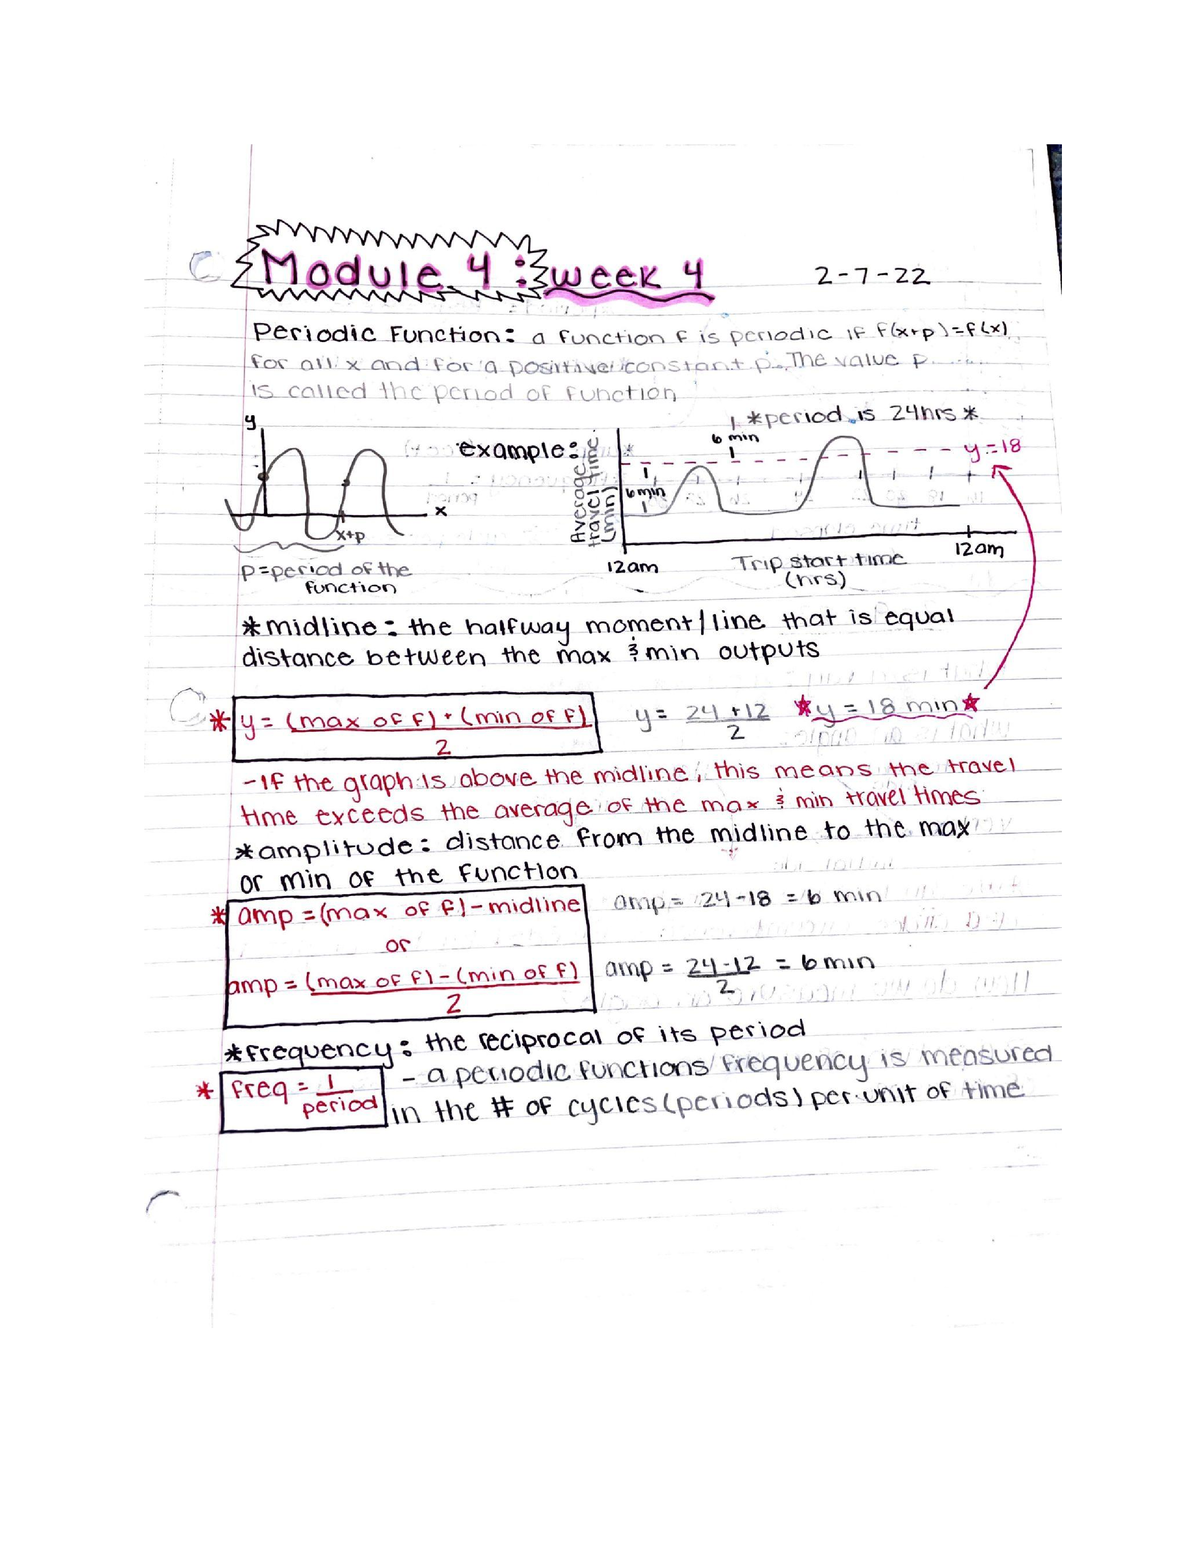 Module 4 : week 4
2-7-22
Periodic Function: a function f is periodic if f(x+p)=f(x)
for all x and for a positive constant p. The value p
is called the period of function
*period is 24hrs*
y
example:
6 min
y=18
Average travel time (min)
6 min
x
x+p
p=period of the
function
12am
Trip start time
(hrs)
12am
*midline: the halfway moment/line that is equal
distance between the max & min outputs
* y = (max of f)+(min of f) / 2
y = 24+12 / 2
*y = 18 min*
-If the graph is above the midline, this means the travel
time exceeds the average of the max & min travel times
*amplitude: distance from the midline to the max
or min of the function
* amp =(max of f)-midline
amp = 24-18 = 6 min
or
amp = (max of f)-(min of f) / 2
amp = 24-12 / 2 = 6min
*frequency: the reciprocal of its period
* freq = 1 / period
- a periodic functions frequency is measured
in the # of cycles (periods) per unit of time